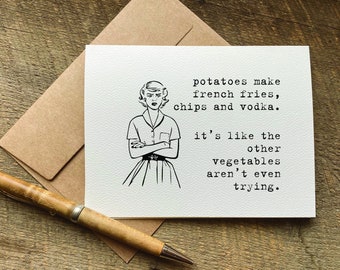 potatoes make
french fries,
chips and vodka.
it's like the
other
vegetables
aren't even
trying.